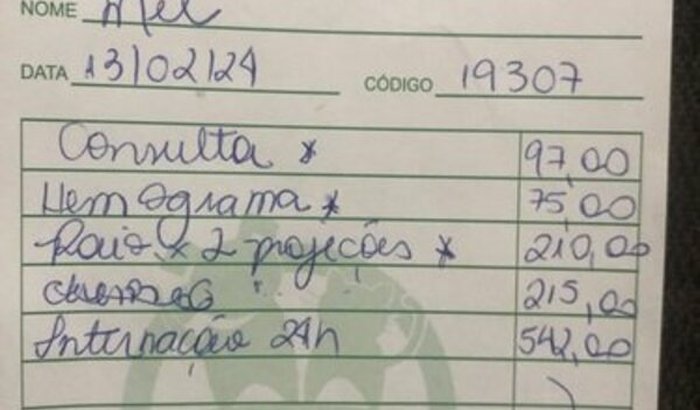 NOME Mel
DATA 13/02/24 CÓDIGO 19307
Consulta * 97,00
Hemograma * 75,00
Raio x 2 projeções * 210,00
215,00
Internação 24h 542,00